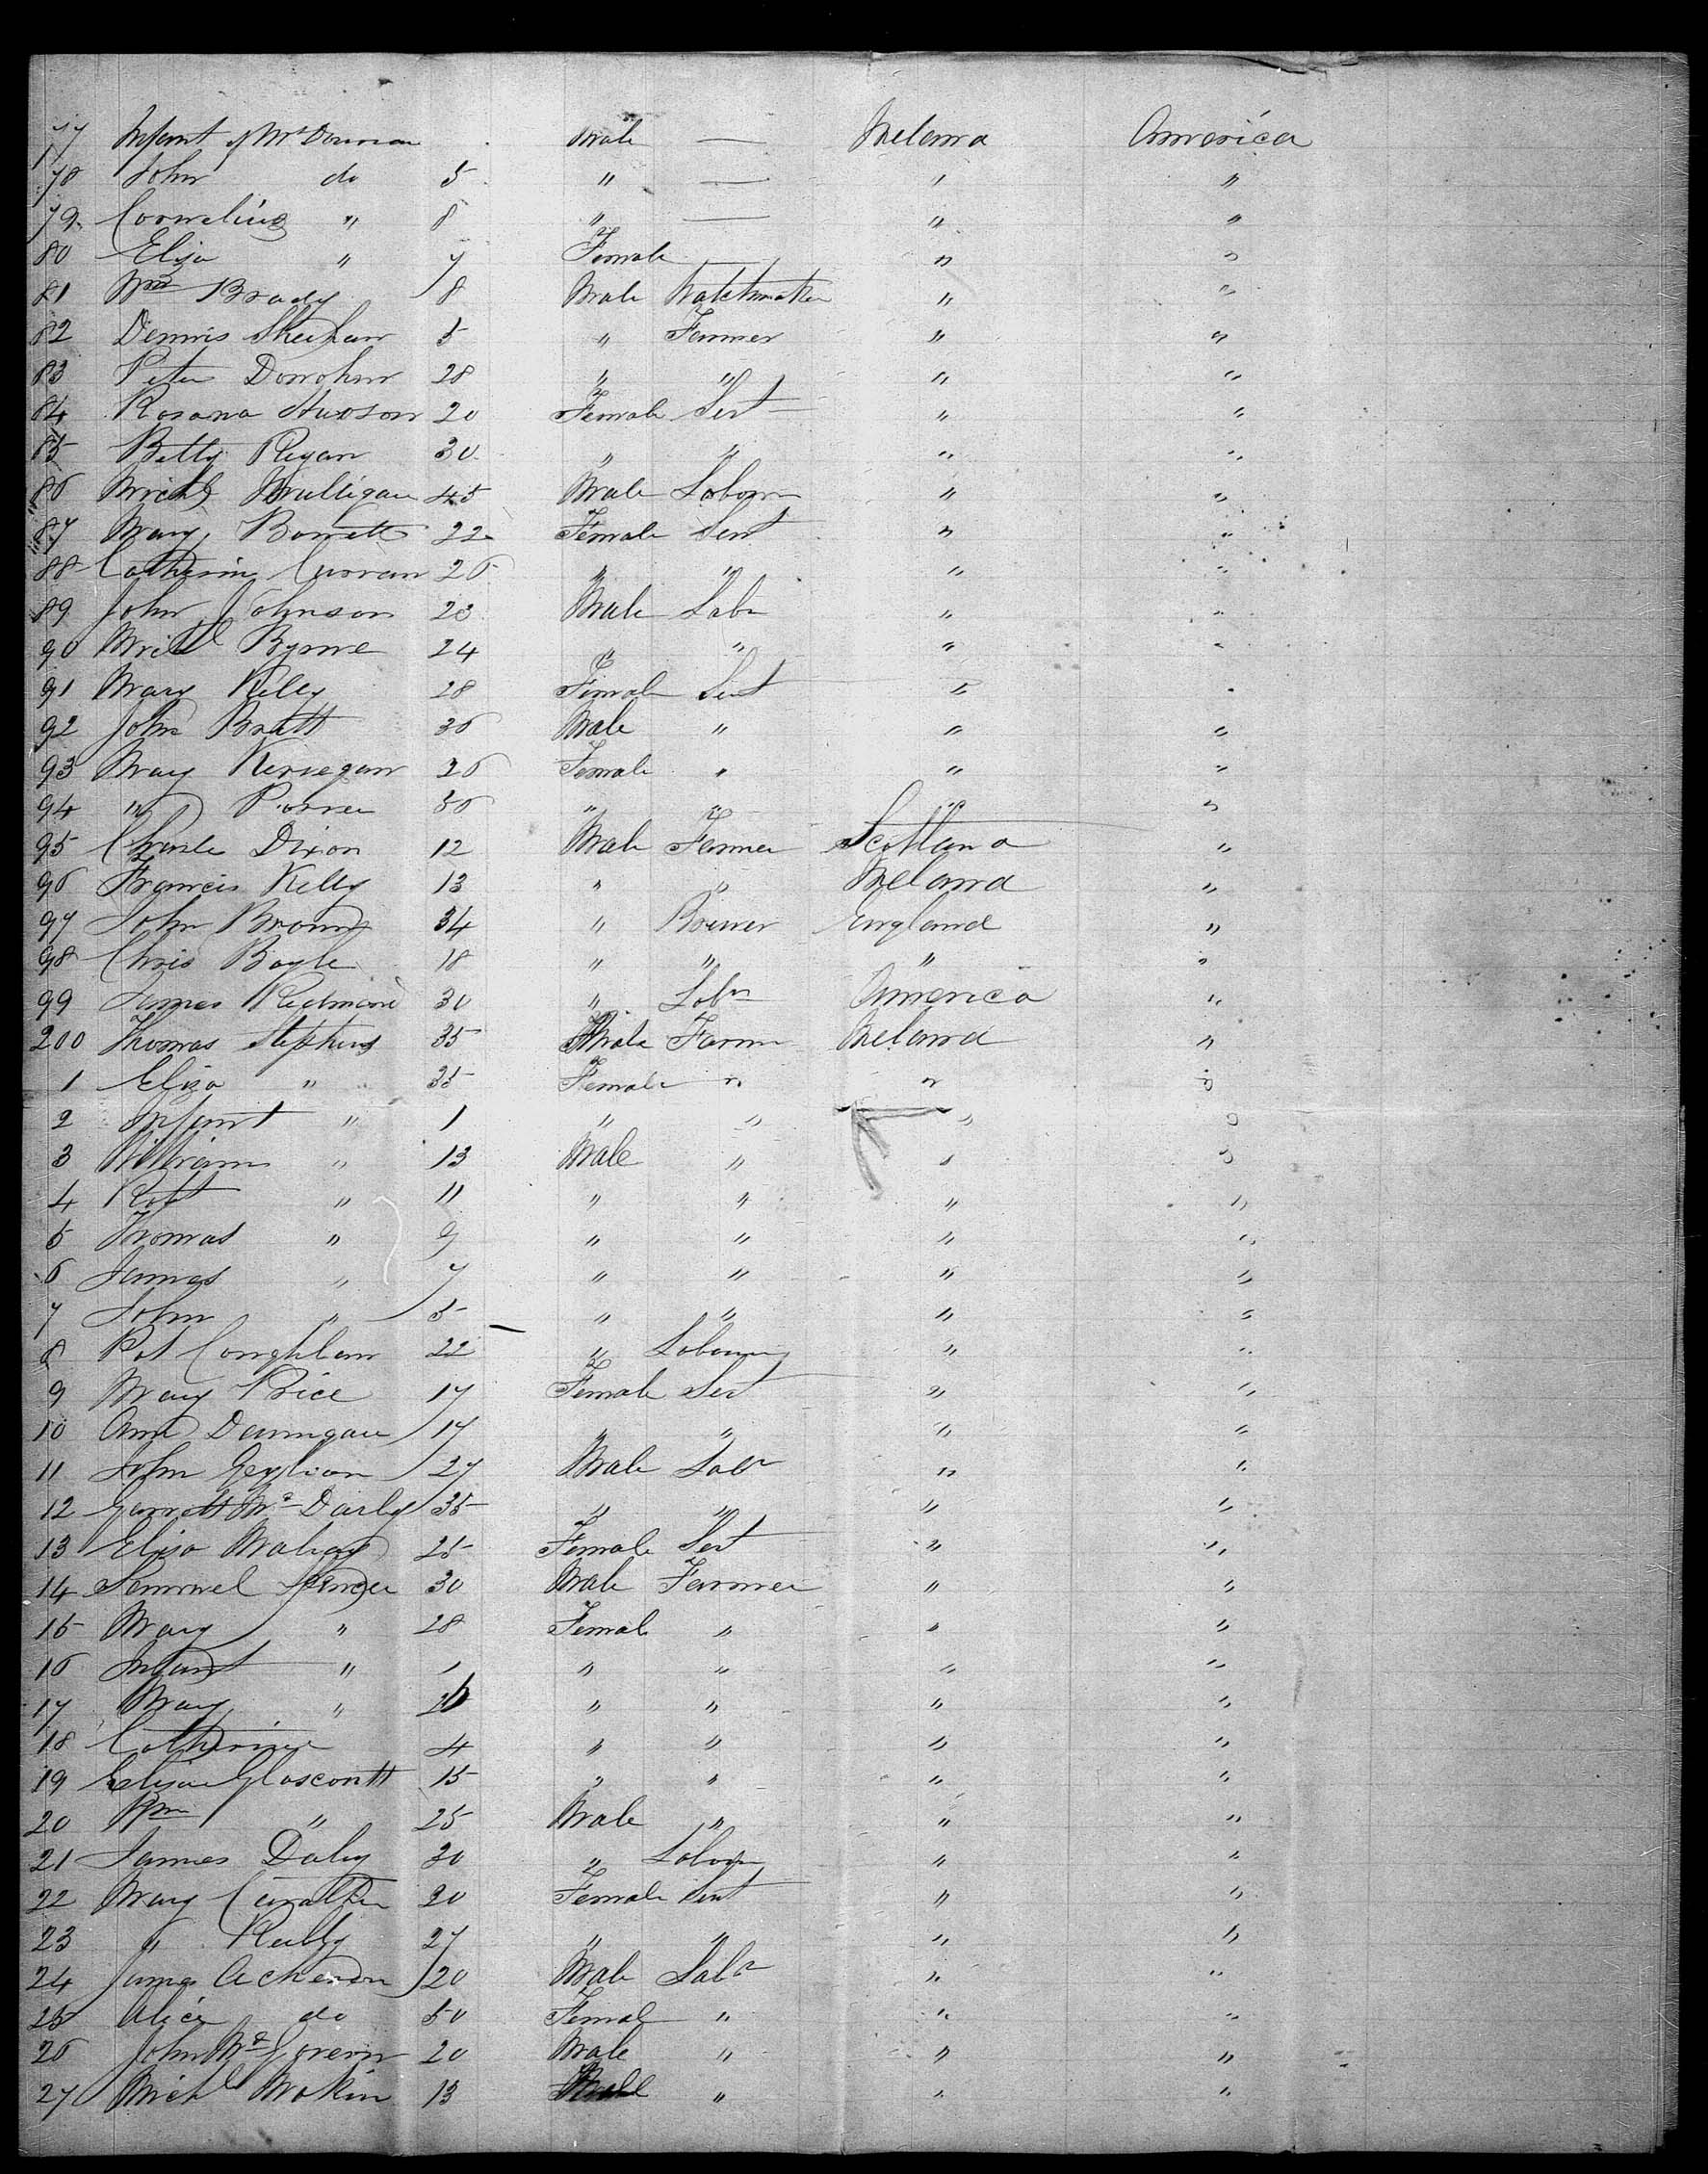 77 Infant of Mc Dournon Male — Ireland America
78 John do 5 " — " "
79 Cornelius " 8 " — " "
80 Eliza " 7 Female — " "
81 Wm Brady 8 Male Watchmaker " "
82 Dennis Sheehan 5 " Farmer " "
83 Peter Donohue 28 " " " "
84 Rosana Hudson 20 Female Sert " "
85 Betty Regan 30 " " " "
86 Michl Mulligan 45 Male Labour " "
87 Mary Barrett 22 Female Sert " "
88 Catherine Curran 26 " " " "
89 John Johnson 23 Male Labr " "
90 Michl Byrne 24 " " " "
91 Mary Kelly 28 Female Sert " "
92 John Bratt 36 Male " " "
93 Mary Keriegan 26 Female " " "
94 " 36 " " " "
95 Charles Dixon 12 Male Farmer Scotland "
96 Francis Kelly 13 " " Ireland "
97 John Brown 34 " Brewer England "
98 Chris Boyle 18 " " " "
99 James Redmond 30 " Labr America "
200 Thomas Stephens 35 Male Farmr Ireland "
1 Eliza " 35 Female " " "
2 Infant " 1 " " " "
3 William " 13 Male " " "
4 Robt " 11 " " " "
5 Thomas " 9 " " " "
6 James " 7 " " " "
7 John " 5 " " " "
8 Pat Coughlan 22 " Labourer " "
9 Mary Price 17 Female Sert " "
10 Ann Dannigan 17 " " " "
11 John 27 Male Labr " "
12 Garrett Mc Darby 35 " " " "
13 Eliza Mahay 25 Female Sert " "
14 Samuel 30 Male Farmer " "
15 Mary " 28 Female " " "
16 Infant " 1 " " " "
17 Mary " " " " "
18 Catherine 4 " " " "
19 Eliza Glascontt 15 " " " "
20 Wm " 25 Male " " "
21 James Daly 30 " Labour " "
22 Mary 20 Female Sert " "
23 " Reilly 27 " " " "
24 James Acheson 20 Male Labr " "
25 Alice do 50 Female " " "
26 John McGovern 20 Male " " "
27 Michl Makin 13 Male " " "